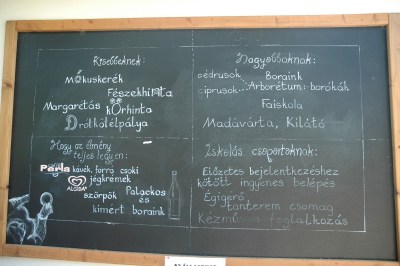 Kisebbeknek:
Mókuskerék
Fészekhinta
Margarétás körhinta
Drótkötélpálya
Nagyobbaknak:
cédrusok Boraink
ciprusok... Arborétum: borókák
Faiskola
Madárvárta, Kilátó
Hogy az élmény
teljes legyen:
Paola kávék, forró csoki
ALGIDA jégkrémek
szörpök Palackos
és
kimért boraink
Iskolás csoportoknak:
Előzetes bejelentkezéshez
kötött ingyenes belépés
Égigérő
tanterem csomag
Kézműves foglalkozás